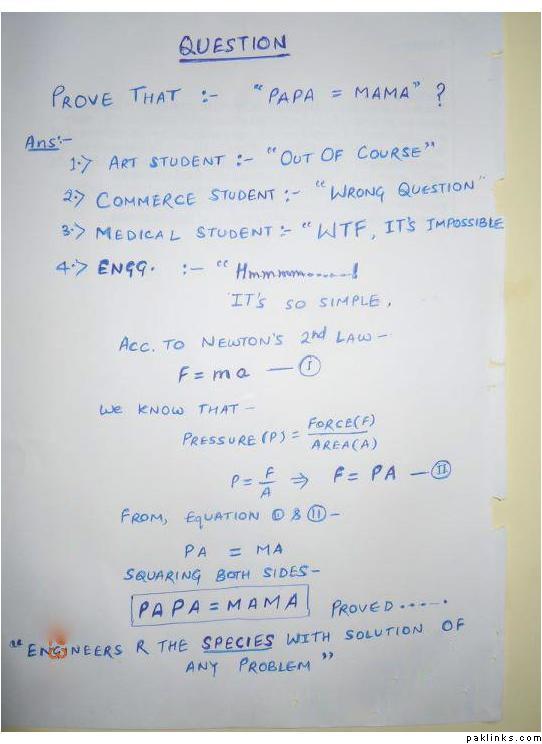 QUESTION
PROVE THAT :- "PAPA = MAMA" ?
Ans:-
1.> ART STUDENT :- "OUT OF COURSE"
2.> COMMERCE STUDENT :- "WRONG QUESTION"
3.> MEDICAL STUDENT :- "WTF, IT'S IMPOSSIBLE
4.> ENGG. :- "Hmmmmm......!
IT'S SO SIMPLE.
ACC. TO NEWTON'S 2nd LAW -
F = ma — (I)
WE KNOW THAT -
PRESSURE (P) = FORCE(F) / AREA(A)
P = F/A ⇒ F = PA — (II)
FROM, EQUATION (I) & (II) -
PA = MA
SQUARING BOTH SIDES -
PAPA = MAMA PROVED......
"ENGINEERS R THE SPECIES WITH SOLUTION OF
ANY PROBLEM"
paklinks.com